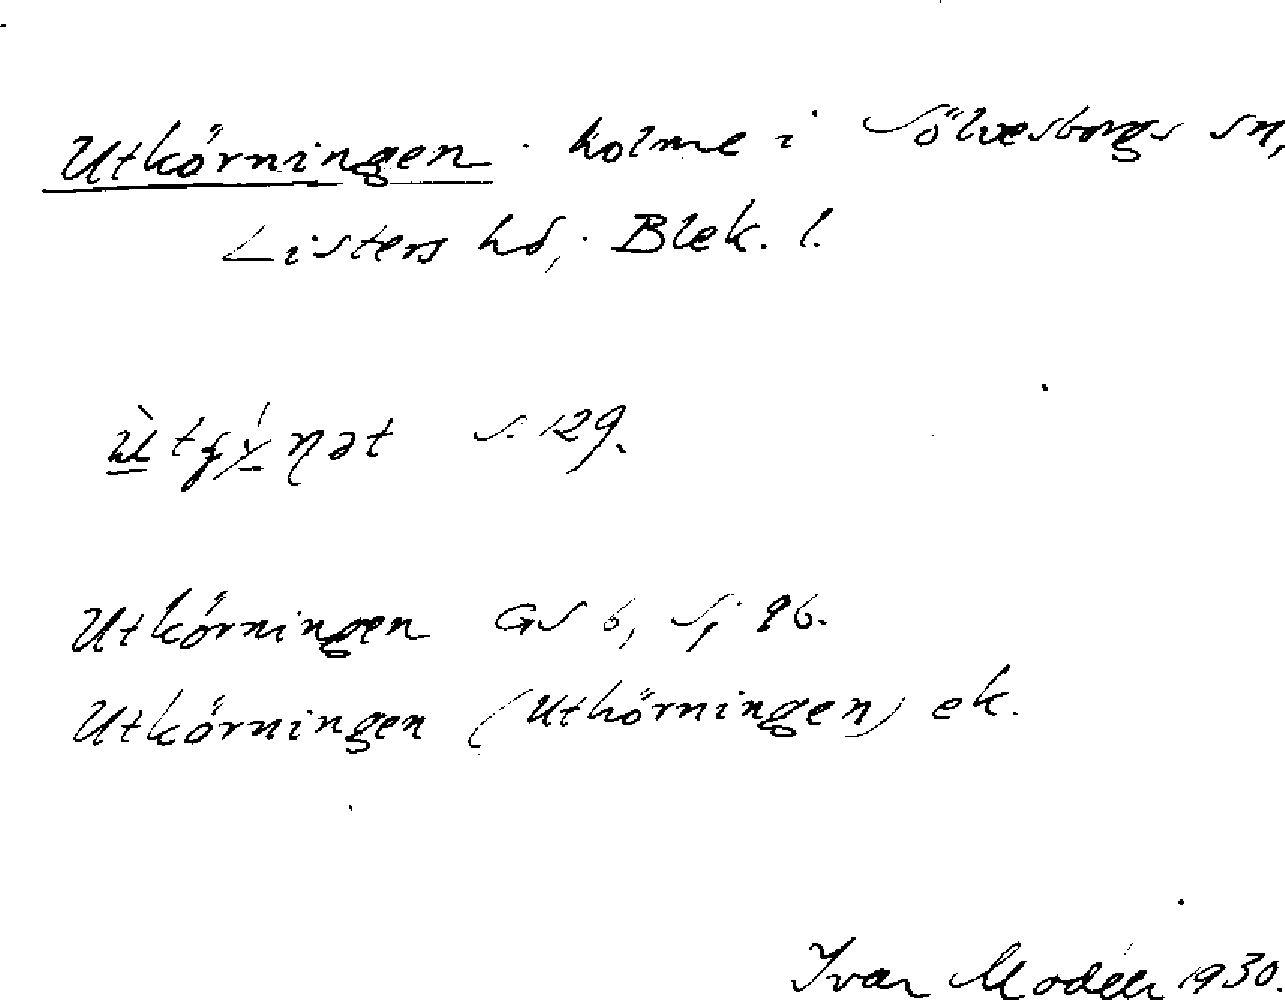 Utkörningen holme i Sölvesborgs sn,
Listers hd, Blek. l.
s. 129.
Utkörningen GS 6, Sj 96.
Utkörningen (Uthörningen) ek.
Ivar Modéer 1930.